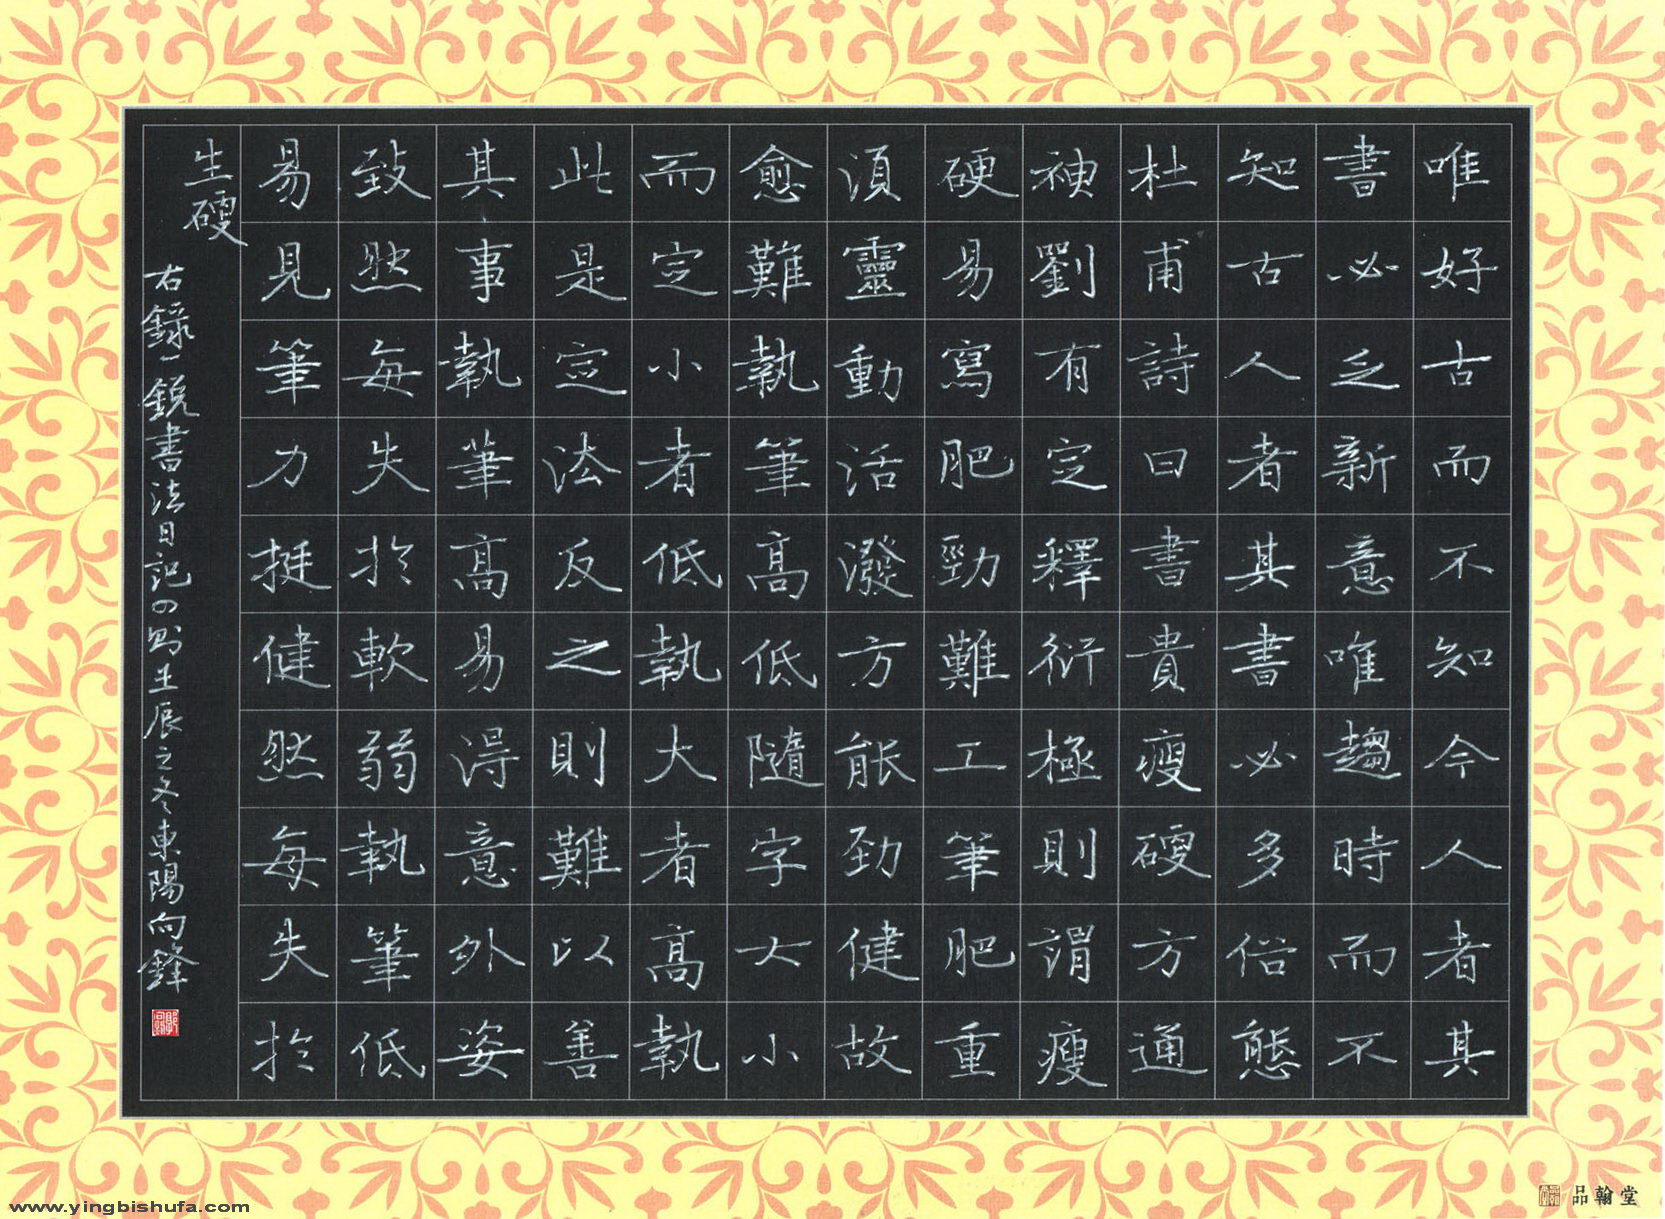 唯好古而不知今人者其
書必乏新意唯趨時而不
知古人者其書必多俗態
杜甫詩曰書貴瘦硬方通
神劉有定釋衍極則謂瘦
硬易寫肥勁難工筆肥重
須靈動活潑方能勁健故
愈難執筆高低隨字大小
而定小者低執大者高執
此是定法反之則難以善
其事執筆高易得意外姿
致然每失於軟弱執筆低
易見筆力挺健然每失於
生硬
右錄一銳書法日記四則壬辰之冬東陽向鋒
www.yingbishufa.com
品翰堂